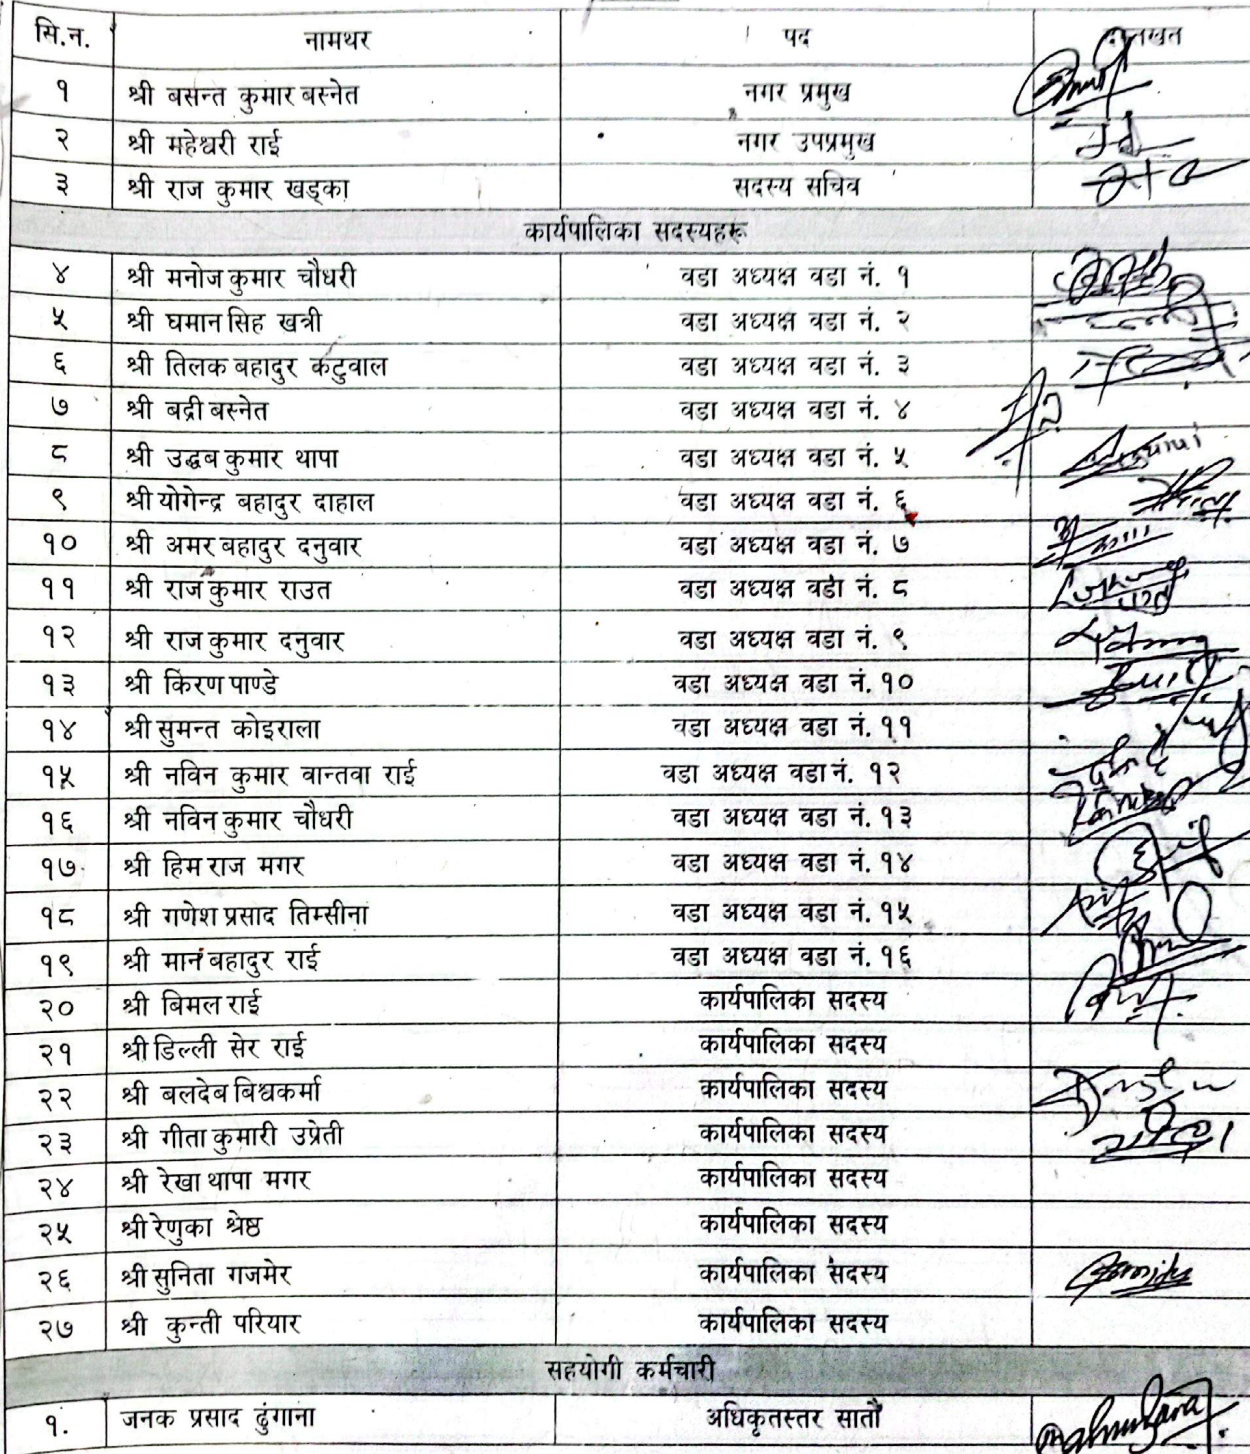 सि.न. नामथर पद दस्तखत
१ श्री बसन्त कुमार बस्नेत नगर प्रमुख
२ श्री महेश्वरी राई नगर उपप्रमुख
३ श्री राज कुमार खड्का सदस्य सचिव
कार्यपालिका सदस्यहरू
४ श्री मनोज कुमार चौधरी वडा अध्यक्ष वडा नं. १
५ श्री घमान सिह खत्री वडा अध्यक्ष वडा नं. २
६ श्री तिलक बहादुर कटुवाल वडा अध्यक्ष वडा नं. ३
७ श्री बद्री बस्नेत वडा अध्यक्ष वडा नं. ४
८ श्री उद्धब कुमार थापा वडा अध्यक्ष वडा नं. ५
९ श्री योगेन्द्र बहादुर दाहाल वडा अध्यक्ष वडा नं. ६
१० श्री अमर बहादुर दनुवार वडा अध्यक्ष वडा नं. ७
११ श्री राज कुमार राउत वडा अध्यक्ष वडा नं. ८
१२ श्री राज कुमार दनुवार वडा अध्यक्ष वडा नं. ९
१३ श्री किरण पाण्डे वडा अध्यक्ष वडा नं. १०
१४ श्री सुमन्त कोइराला वडा अध्यक्ष वडा नं. ११
१५ श्री नविन कुमार वान्तवा राई वडा अध्यक्ष वडा नं. १२
१६ श्री नविन कुमार चौधरी वडा अध्यक्ष वडा नं. १३
१७ श्री हिम राज मगर वडा अध्यक्ष वडा नं. १४
१८ श्री गणेश प्रसाद तिम्सीना वडा अध्यक्ष वडा नं. १५
१९ श्री मान बहादुर राई वडा अध्यक्ष वडा नं. १६
२० श्री बिमल राई कार्यपालिका सदस्य
२१ श्री डिल्ली सेर राई कार्यपालिका सदस्य
२२ श्री बलदेब बिश्वकर्मा कार्यपालिका सदस्य
२३ श्री गीता कुमारी उप्रेती कार्यपालिका सदस्य
२४ श्री रेखा थापा मगर कार्यपालिका सदस्य
२५ श्री रेणुका श्रेष्ठ कार्यपालिका सदस्य
२६ श्री सुनिता गजमेर कार्यपालिका सदस्य
२७ श्री कुन्ती परियार कार्यपालिका सदस्य
सहयोगी कर्मचारी
१. जनक प्रसाद ढुंगाना अधिकृतस्तर सातौ